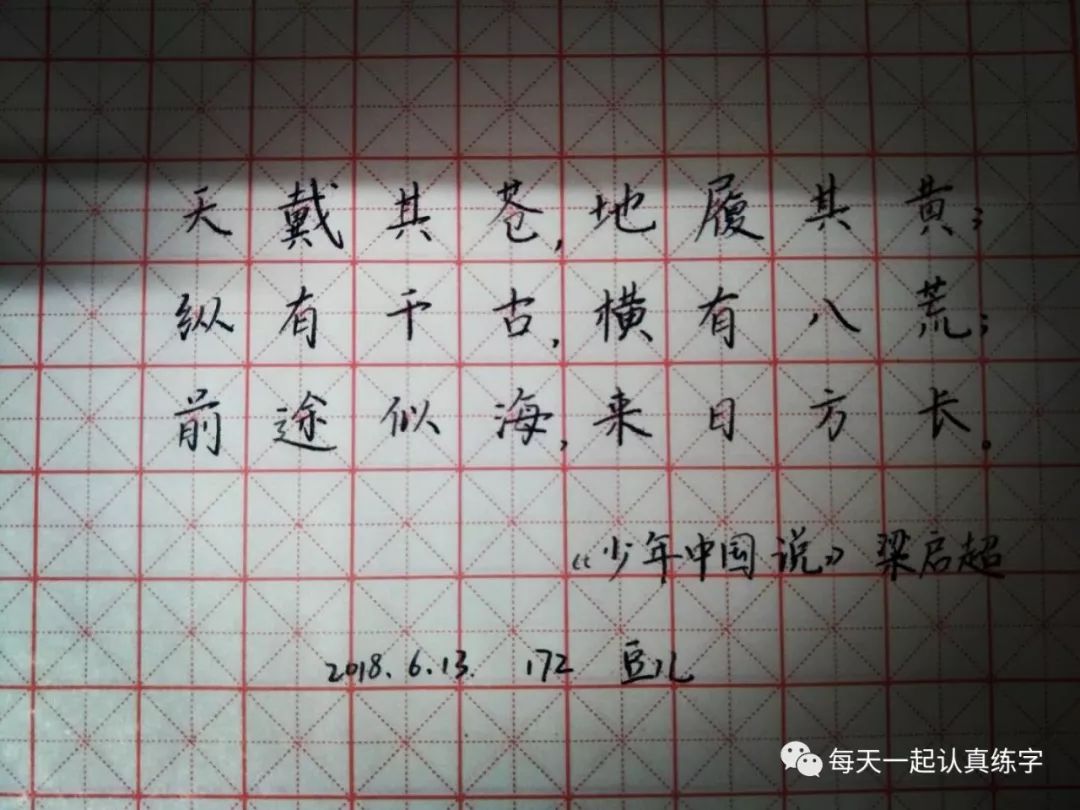 天戴其苍,地履其黄;
纵有千古,横有八荒;
前途似海,来日方长。
《少年中国说》梁启超
2018.6.13. 172 豆儿
每天一起认真练字